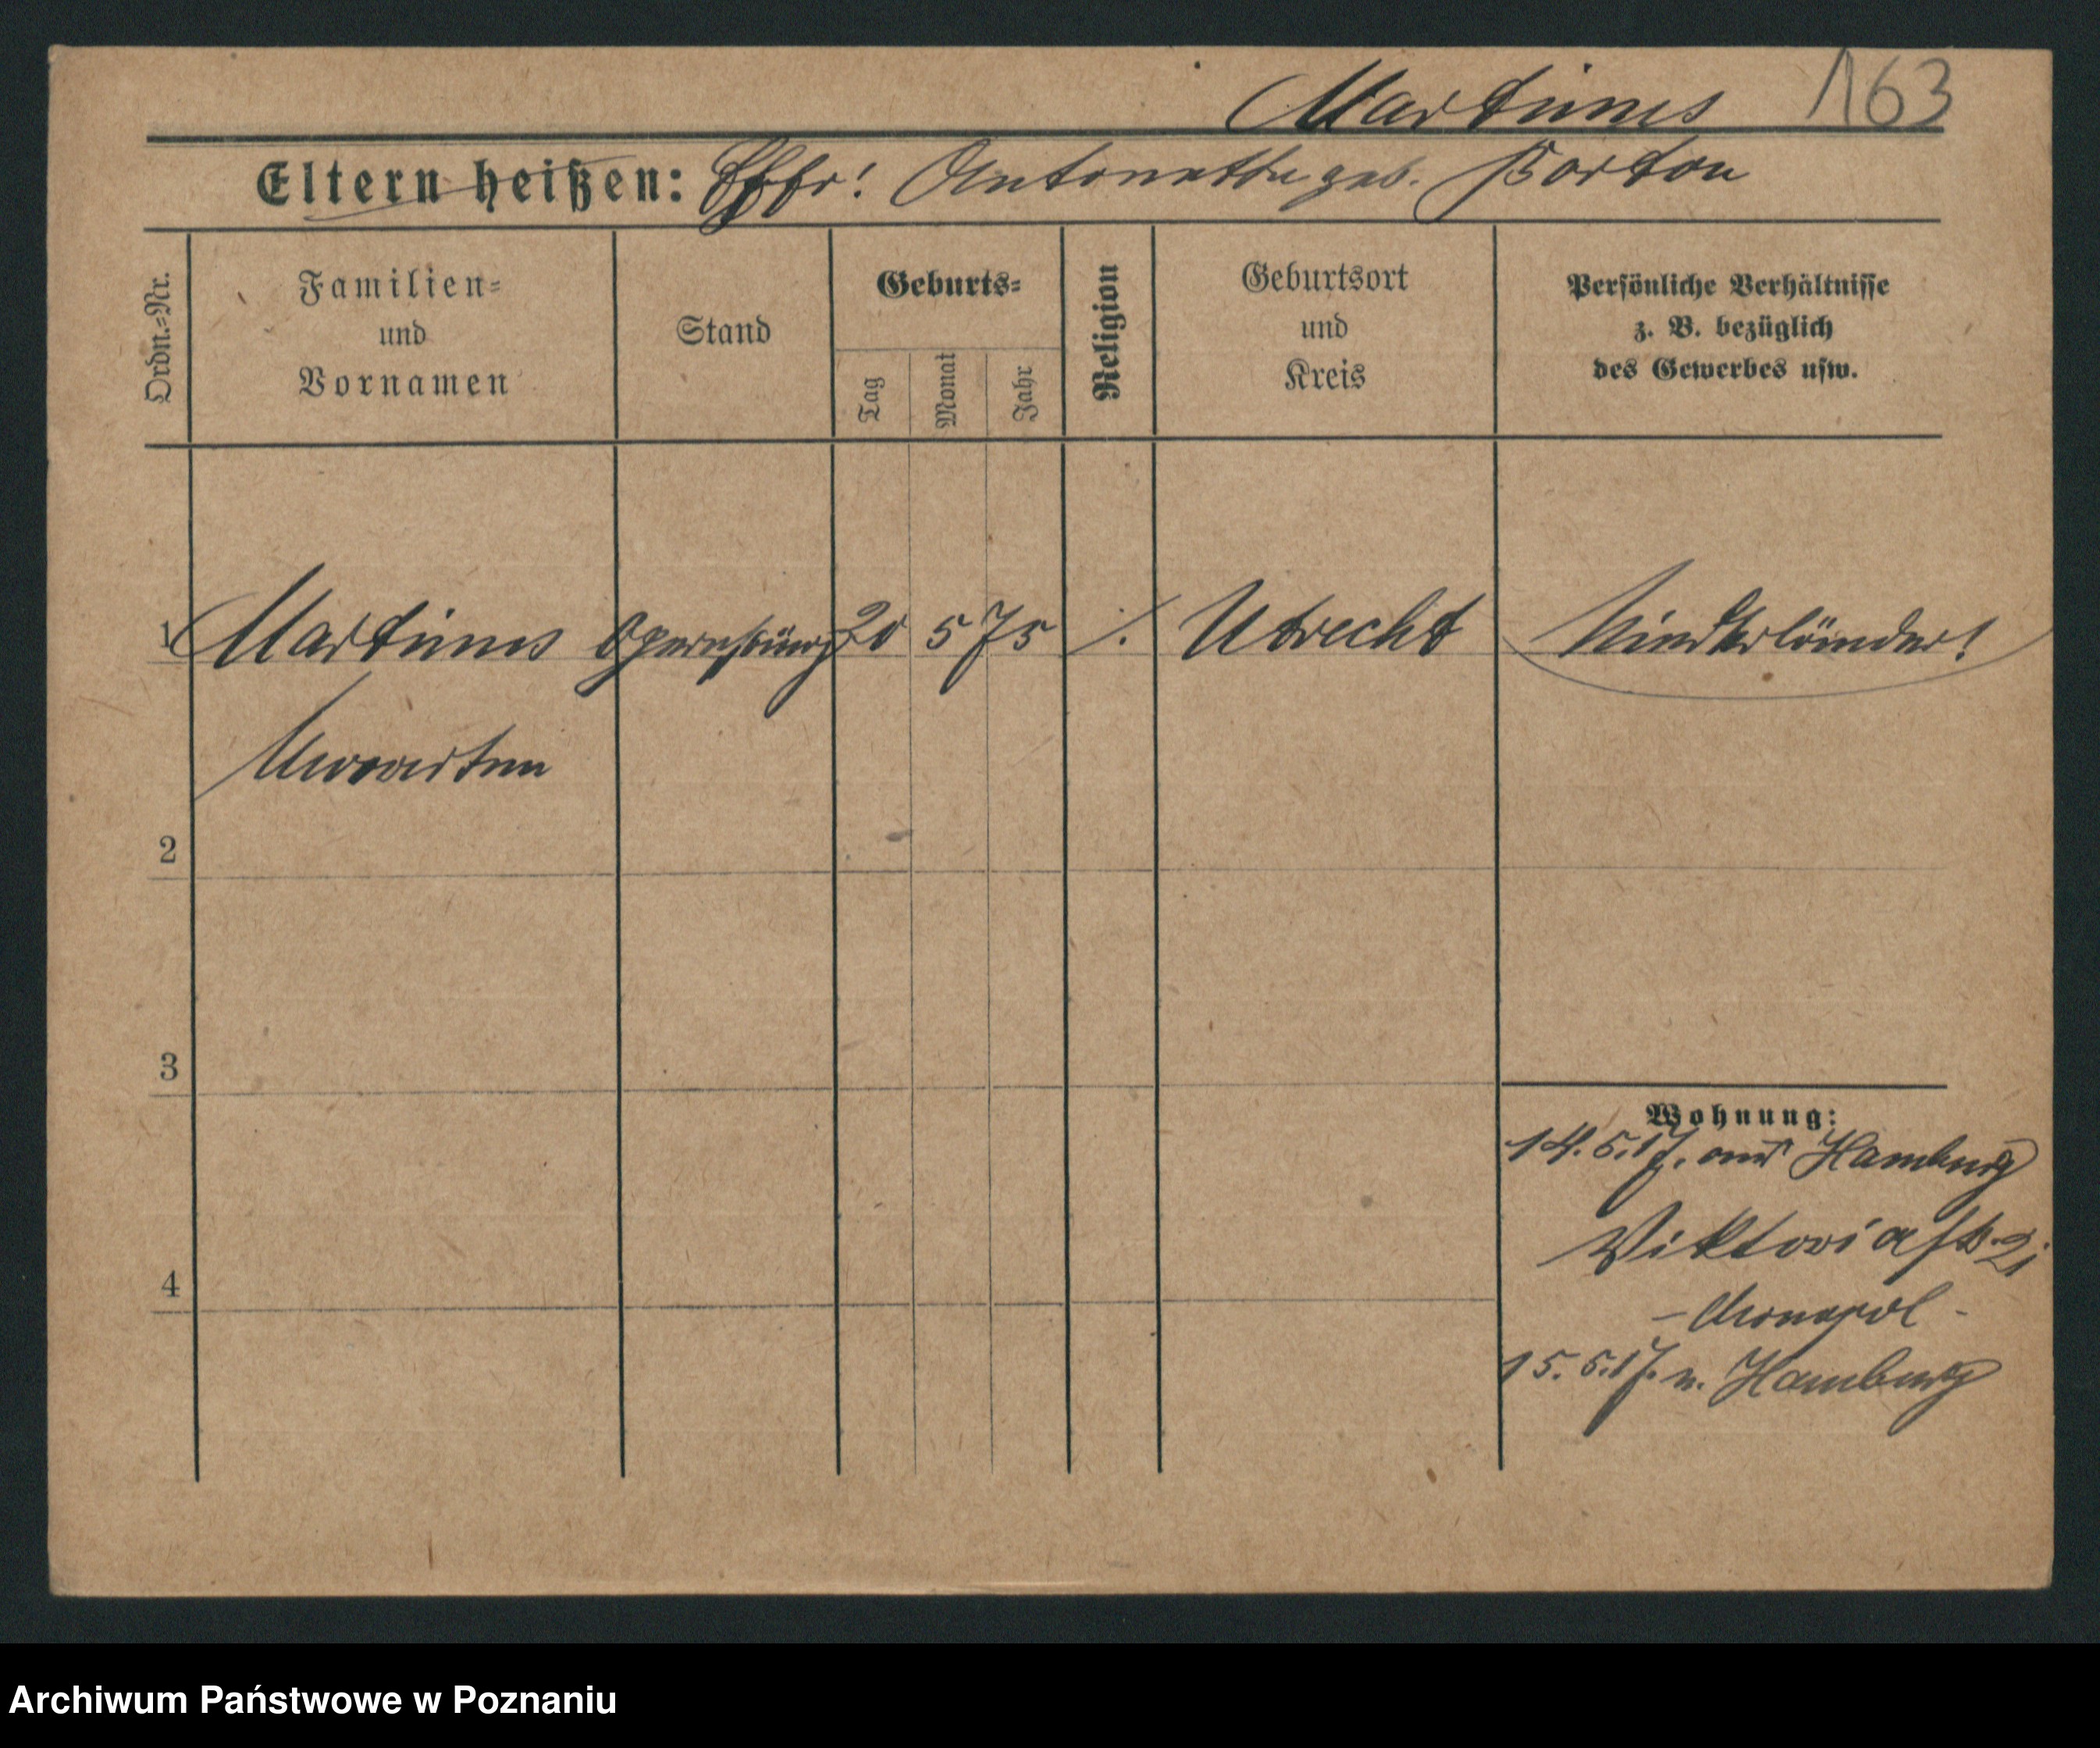 Martinus 163
Eltern heißen: Ehefr! Antonette geb. Borton
Ordn.=Nr.
Familien=
und
Vornamen
Stand
Geburts=
Tag
Monat
Jahr
Religion
Geburtsort
und
Kreis
Persönliche Verhältnisse
z. B. bezüglich
des Gewerbes usw.
1 Martinus Opernsäng 20 5 75 ./. Utrecht Niederländer!
2
3
4
Wohnung:
14.5.17. aus Hamburg
Viktoriastr. 21
- Monopol -
15.5.17. n. Hamburg
Archiwum Państwowe w Poznaniu